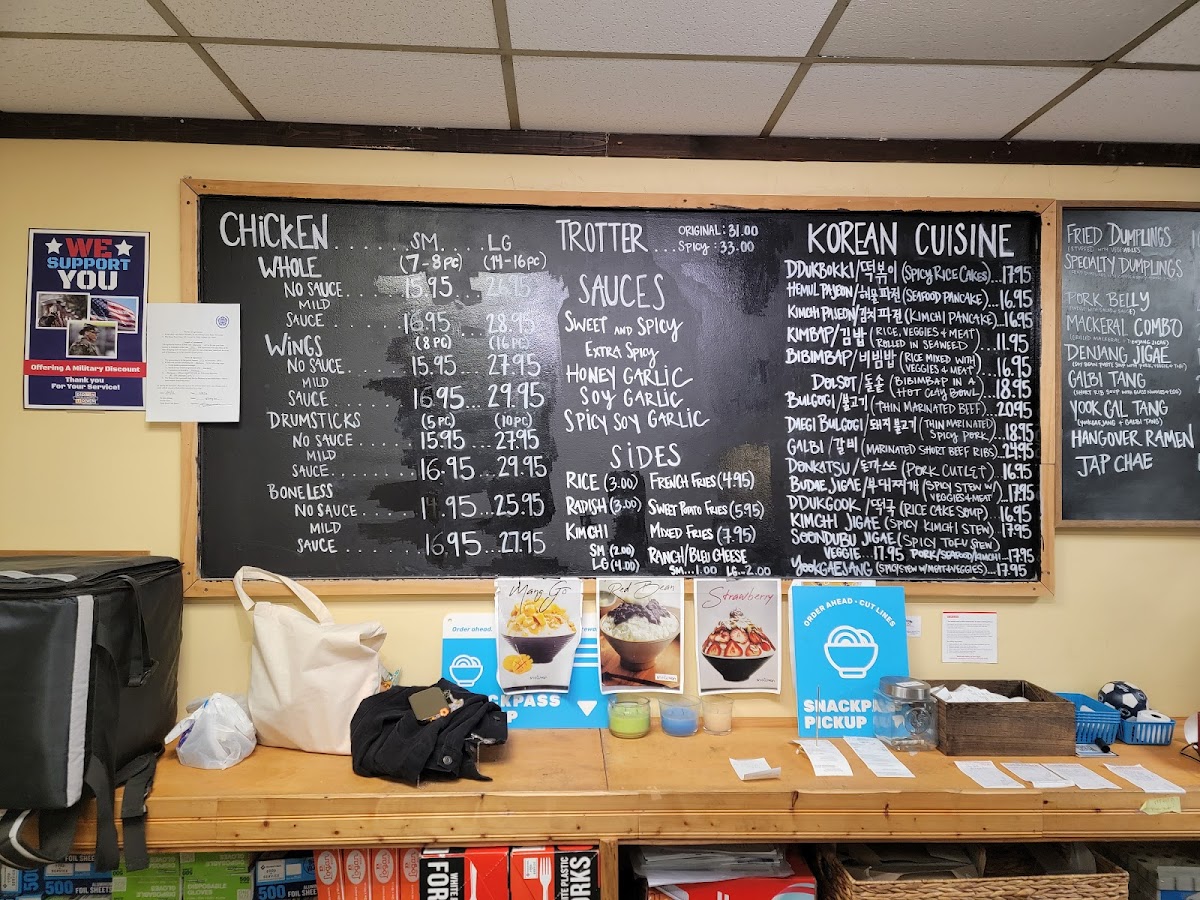 WE
SUPPORT
YOU
Offering A Military Discount
Thank you
For Your Service!
CHICKEN........SM.....LG
WHOLE (7-8PC) (14-16PC)
NO SAUCE.......15.95
MILD
SAUCE.......16.95 28.95
WINGS (8PC) (16PC)
NO SAUCE.......15.95 27.95
MILD
SAUCE.......16.95 29.95
DRUMSTICKS (5PC) (10PC)
NO SAUCE.......15.95 27.95
MILD
SAUCE.......16.95 29.95
BONELESS
NO SAUCE.......14.95 25.95
MILD
SAUCE.......16.95 27.95
TROTTER... ORIGINAL: 31.00
SPICY: 33.00
SAUCES
SWEET AND SPICY
EXTRA SPICY
HONEY GARLIC
SOY GARLIC
SPICY SOY GARLIC
SIDES
RICE (3.00) FRENCH FRIES (4.95)
RADISH (3.00) SWEET POTATO FRIES (5.95)
KIMCHI MIXED FRIES (7.95)
SM (2.00) RANCH/BLEU CHEESE
LG (4.00) SM...1.00 LG..2.00
KOREAN CUISINE
DDUKBOKKI/떡볶이 (SPICY RICE CAKES)..17.95
HEMUL PAJEON/해물파전 (SEAFOOD PANCAKE)...16.95
KIMCHI PAJEON/김치파전 (KIMCHI PANCAKE)...16.95
KIMBAP/김밥 (RICE, VEGGIES & MEAT
ROLLED IN SEAWEED)...11.95
BIBIMBAP/비빔밥 (RICE MIXED WITH
VEGGIES & MEAT)...16.95
DOLSOT/돌솥 (BIBIMBAP IN A
HOT CLAY BOWL)...18.95
BULGOGI/불고기 (THIN MARINATED BEEF)...20.95
DAEGI BULGOGI/돼지불고기 (THIN MARINATED
SPICY PORK)...18.95
GALBI/갈비 (MARINATED SHORT BEEF RIBS)...24.95
DONKATSU/돈가스 (PORK CUTLET)...16.95
BUDAE JIGAE/부대찌개 (SPICY STEW W/
VEGGIES & MEAT)...17.95
DDUKGOOK/떡국 (RICE CAKE SOUP)...16.95
KIMCHI JIGAE (SPICY KIMCHI STEW)...17.95
SOONDUBU JIGAE (SPICY TOFU STEW)
VEGGIE...17.95 PORK/SEAFOOD/KIMCHI..17.95
YOOKGAEJANG (SPICY STEW W/ MEAT & VEGGIES)...17.95
FRIED DUMPLINGS
SPECIALTY DUMPLINGS
PORK BELLY
MACKERAL COMBO
DENJANG JIGAE
GALBI TANG
YOOK GAL TANG
(YOOKGAEJANG + GALBI TANG)
HANGOVER RAMEN
JAP CHAE
Order ahead.
Mango
Red Bean
Strawberry
ORDER AHEAD · CUT LINES
SNACKPA
PICKUP
CKPASS
P
500
FOIL SHEETS
GLOVES
DISPOSABLE
GLOVES
500
FOIL SHEETS
FOR
WHITE
WHITE PLASTIC
RKS